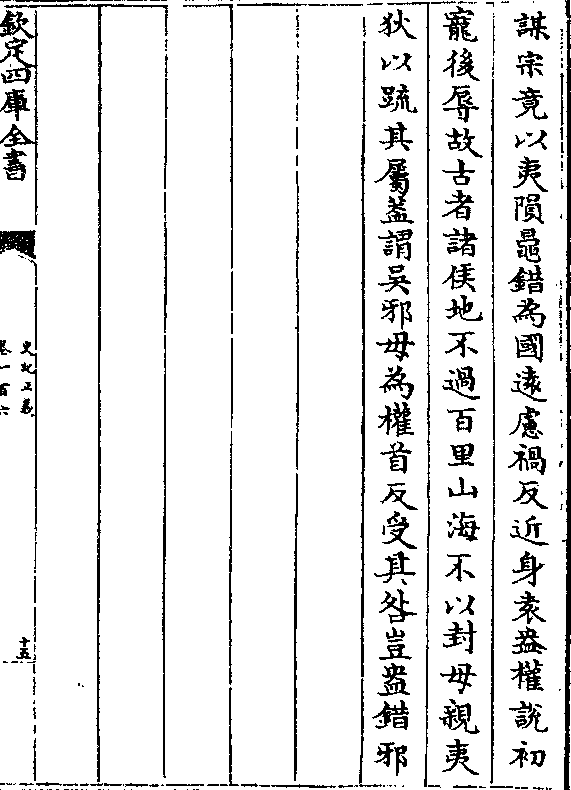 謀宗竟以夷隕鼂錯為國遠慮禍反近身袁盎權說初
寵後辱故古者諸侯地不過百里山海不以封毋親夷
狄以踈其屬葢謂吳邪毋為權首反受其咎豈盎錯邪
欽定四庫全書
史記正義
卷一百六
十五